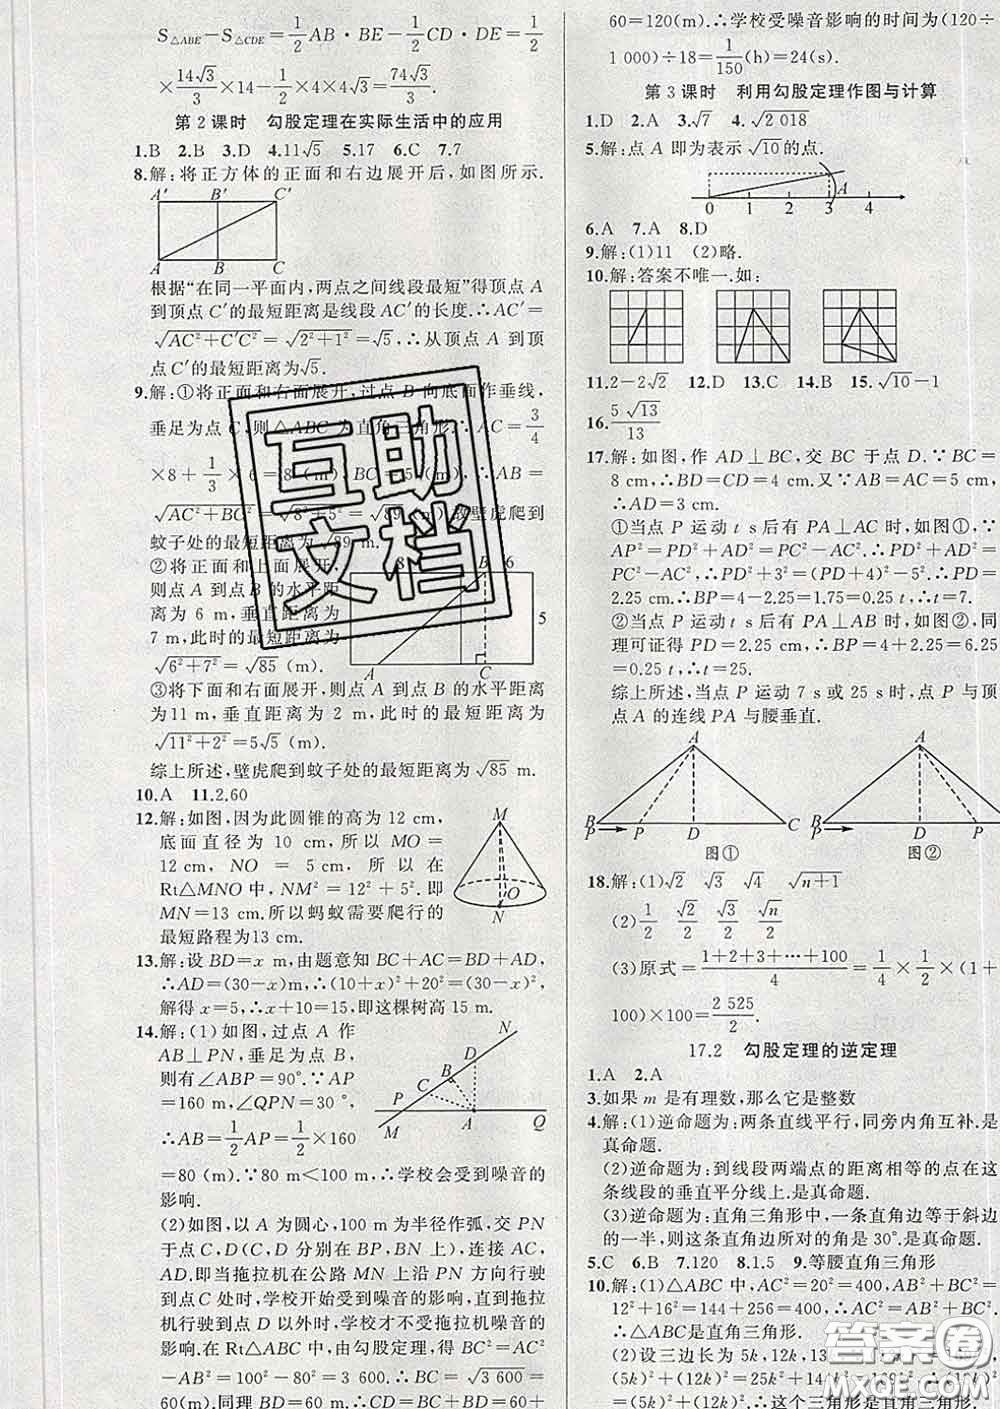 S△ABE－S△CDE＝1/2 AB·BE－1/2 CD·DE＝1/2
×14√3/3×14－1/2×4×4√3＝74√3/3.
第2课时 勾股定理在实际生活中的应用
1.B 2.B 3.D 4.11√5 5.17 6.C 7.7
8.解:将正方体的正面和右边展开后,如图所示.
A′ B′ C′
A B C
根据“在同一平面内,两点之间线段最短”得顶点A
到顶点C′的最短距离是线段AC′的长度.∴AC′＝
√(AC²＋C′C²)＝√(2²＋1²)＝√5,∴从顶点A到顶
点C′的最短距离为√5.
9.解:①将正面和右面展开,过点B向底面作垂线,
垂足为点C,则△ABC为直角三角形.∴AC＝3/4
×8＋1/3×6＝8(m),BC＝5(m).∴AB＝
√(AC²＋BC²)＝√(8²＋5²)＝√89(m).故壁虎爬到
蚊子处的最短距离为√89 m.
②将正面和上面展开,
则点A到点B的水平距
离为6 m,垂直距离为
7 m,此时的最短距离为
√(6²＋7²)＝√85(m).
8 B 6
5
A C
③将下面和右面展开,则点A到点B的水平距离
为11 m,垂直距离为2 m,此时的最短距离为
√(11²＋2²)＝5√5(m).
综上所述,壁虎爬到蚊子处的最短距离为√85 m.
10.A 11.2.60
12.解:如图,因为此圆锥的高为12 cm,
底面直径为10 cm,所以MO＝
12 cm,NO＝5 cm,所以在
Rt△MNO中,NM²＝12²＋5².即
MN＝13 cm.所以蚂蚁需要爬行的
最短路程为13 cm.
M
O
N
13.解:设BD＝x m,由题意知BC＋AC＝BD＋AD,
∴AD＝(30－x)m,∴(10＋x)²＋20²＝(30－x)²,
解得x＝5,∴x＋10＝15,即这棵树高15 m.
14.解:(1)如图,过点A作
AB⊥PN,垂足为点B,
则有∠ABP＝90°.∵AP
＝160 m,∠QPN＝30°,
∴AB＝1/2AP＝1/2×160
＝80(m).∵80 m＜100 m,∴学校会受到噪音的
影响.
N
D
B
C
P
M A Q
(2)如图,以A为圆心,100 m为半径作弧,交PN
于点C,D(C,D分别在BP,BN上),连接AC,
AD.即当拖拉机在公路MN上沿PN方向行驶
到点C处时,学校开始受到噪音的影响,直到拖拉
机行驶到点D以外时,学校才不受拖拉机噪音的
影响.在Rt△ABC中,由勾股定理得BC²＝AC²
－AB²＝100²－80²＝3 600.∴BC＝√3 600＝
60(m),同理BD＝60 m.∴CD＝BC＋BD＝60＋
60＝120(m).∴学校受噪音影响的时间为(120÷
1 000)÷18＝1/150(h)＝24(s).
第3课时 利用勾股定理作图与计算
1.D 2.A 3.√7 4.√2 018
5.解:点A即为表示√10的点.
A
0 1 2 3 4
6.A 7.A 8.D
9.解:(1)11 (2)略.
10.解:答案不唯一.如:
11.2－2√2 12.D 13.C 14.B 15.√10－1
16.5√13/13
17.解:如图,作AD⊥BC,交BC于点D.∵BC＝
8 cm,∴BD＝CD＝4 cm.又∵AB＝AC＝5 cm,
∴AD＝3 cm.
①当点P运动t s后有PA⊥AC时,如图①,∵
AP²＝PD²＋AD²＝PC²－AC²,∴PD²＋AD²＝
PC²－AC².∴PD²＋3²＝(PD＋4)²－5².∴PD＝
2.25 cm.∴BP＝4－2.25＝1.75＝0.25 t,∴t＝7.
②当点P运动t s后有PA⊥AB时,如图②,同
理可证得PD＝2.25 cm,∴BP＝4＋2.25＝6.25
＝0.25 t,∴t＝25.
综上所述,当点P运动7 s或25 s时,点P与顶
点A的连线PA与腰垂直.
A A
B P P D C B P D P
图① 图②
18.解:(1)√2 √3 √4 √(n＋1)
(2)1/2 √2/2 √3/2 √n/2
(3)原式＝(1＋2＋3＋…＋100)/4＝1/4×1/2×(1＋
100)×100＝2 525/2.
17.2 勾股定理的逆定理
1.A 2.A
3.如果m是有理数,那么它是整数
4.解:(1)逆命题为:两条直线平行,同旁内角互补.是
真命题.
(2)逆命题为:到线段两端点的距离相等的点在这
条线段的垂直平分线上.是真命题.
(3)逆命题为:直角三角形中,一条直角边等于斜边
的一半,则这条直角边所对的角是30°.是真命题.
5.C 6.B 7.120 8.1.5 9.等腰直角三角形
10.解:(1)△ABC中,AC²＝20²＝400,AB²＋BC²＝
12²＋16²＝144＋256＝400,∴AC²＝AB²＋BC².
∴△ABC是直角三角形.
(2)设三边长为5k,12k,13
(5k)²＋(12k)²＝25k²＋144k²＝169k²,
＝(5k)²＋(12k)².∴这个三角形是直角三
互助文档
答案圈
MXQE.COM